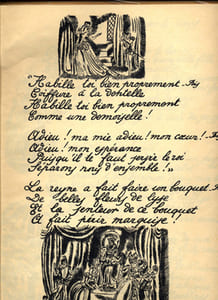 "Habille toi bien proprement. Ay
Coiffure à la dentelle
Habille toi bien proprement
Comme une demoiselle !
Adieu ! ma mie adieu ! mon cœur ! Ay
Adieu ! mon espérance
Puisqu'il te faut servir le roi
Séparons nous d'ensemble ! »
La reyne a fait faire un bouquet. Ay
De belles fleurs de lyse
Et la senteur de ce bouquet
A fait périr marquise !